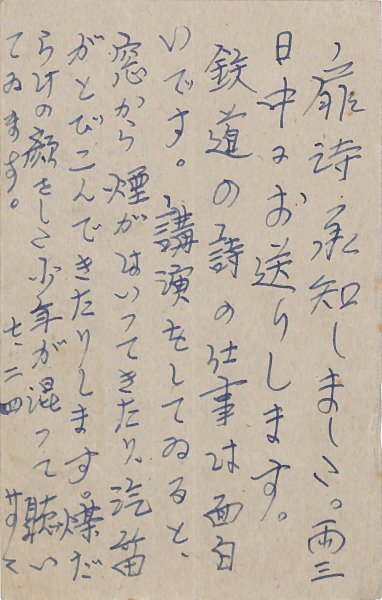 扉詩承知しました。両三
日中にお送りします。
鉄道の詩の仕事は面白
いです。講演をしてゐると、
窓から煙がはいってきたり、汽笛
がとびこんできたりします。煤だ
らけの顔をした少年が混って聴い
てゐます。
七、二四